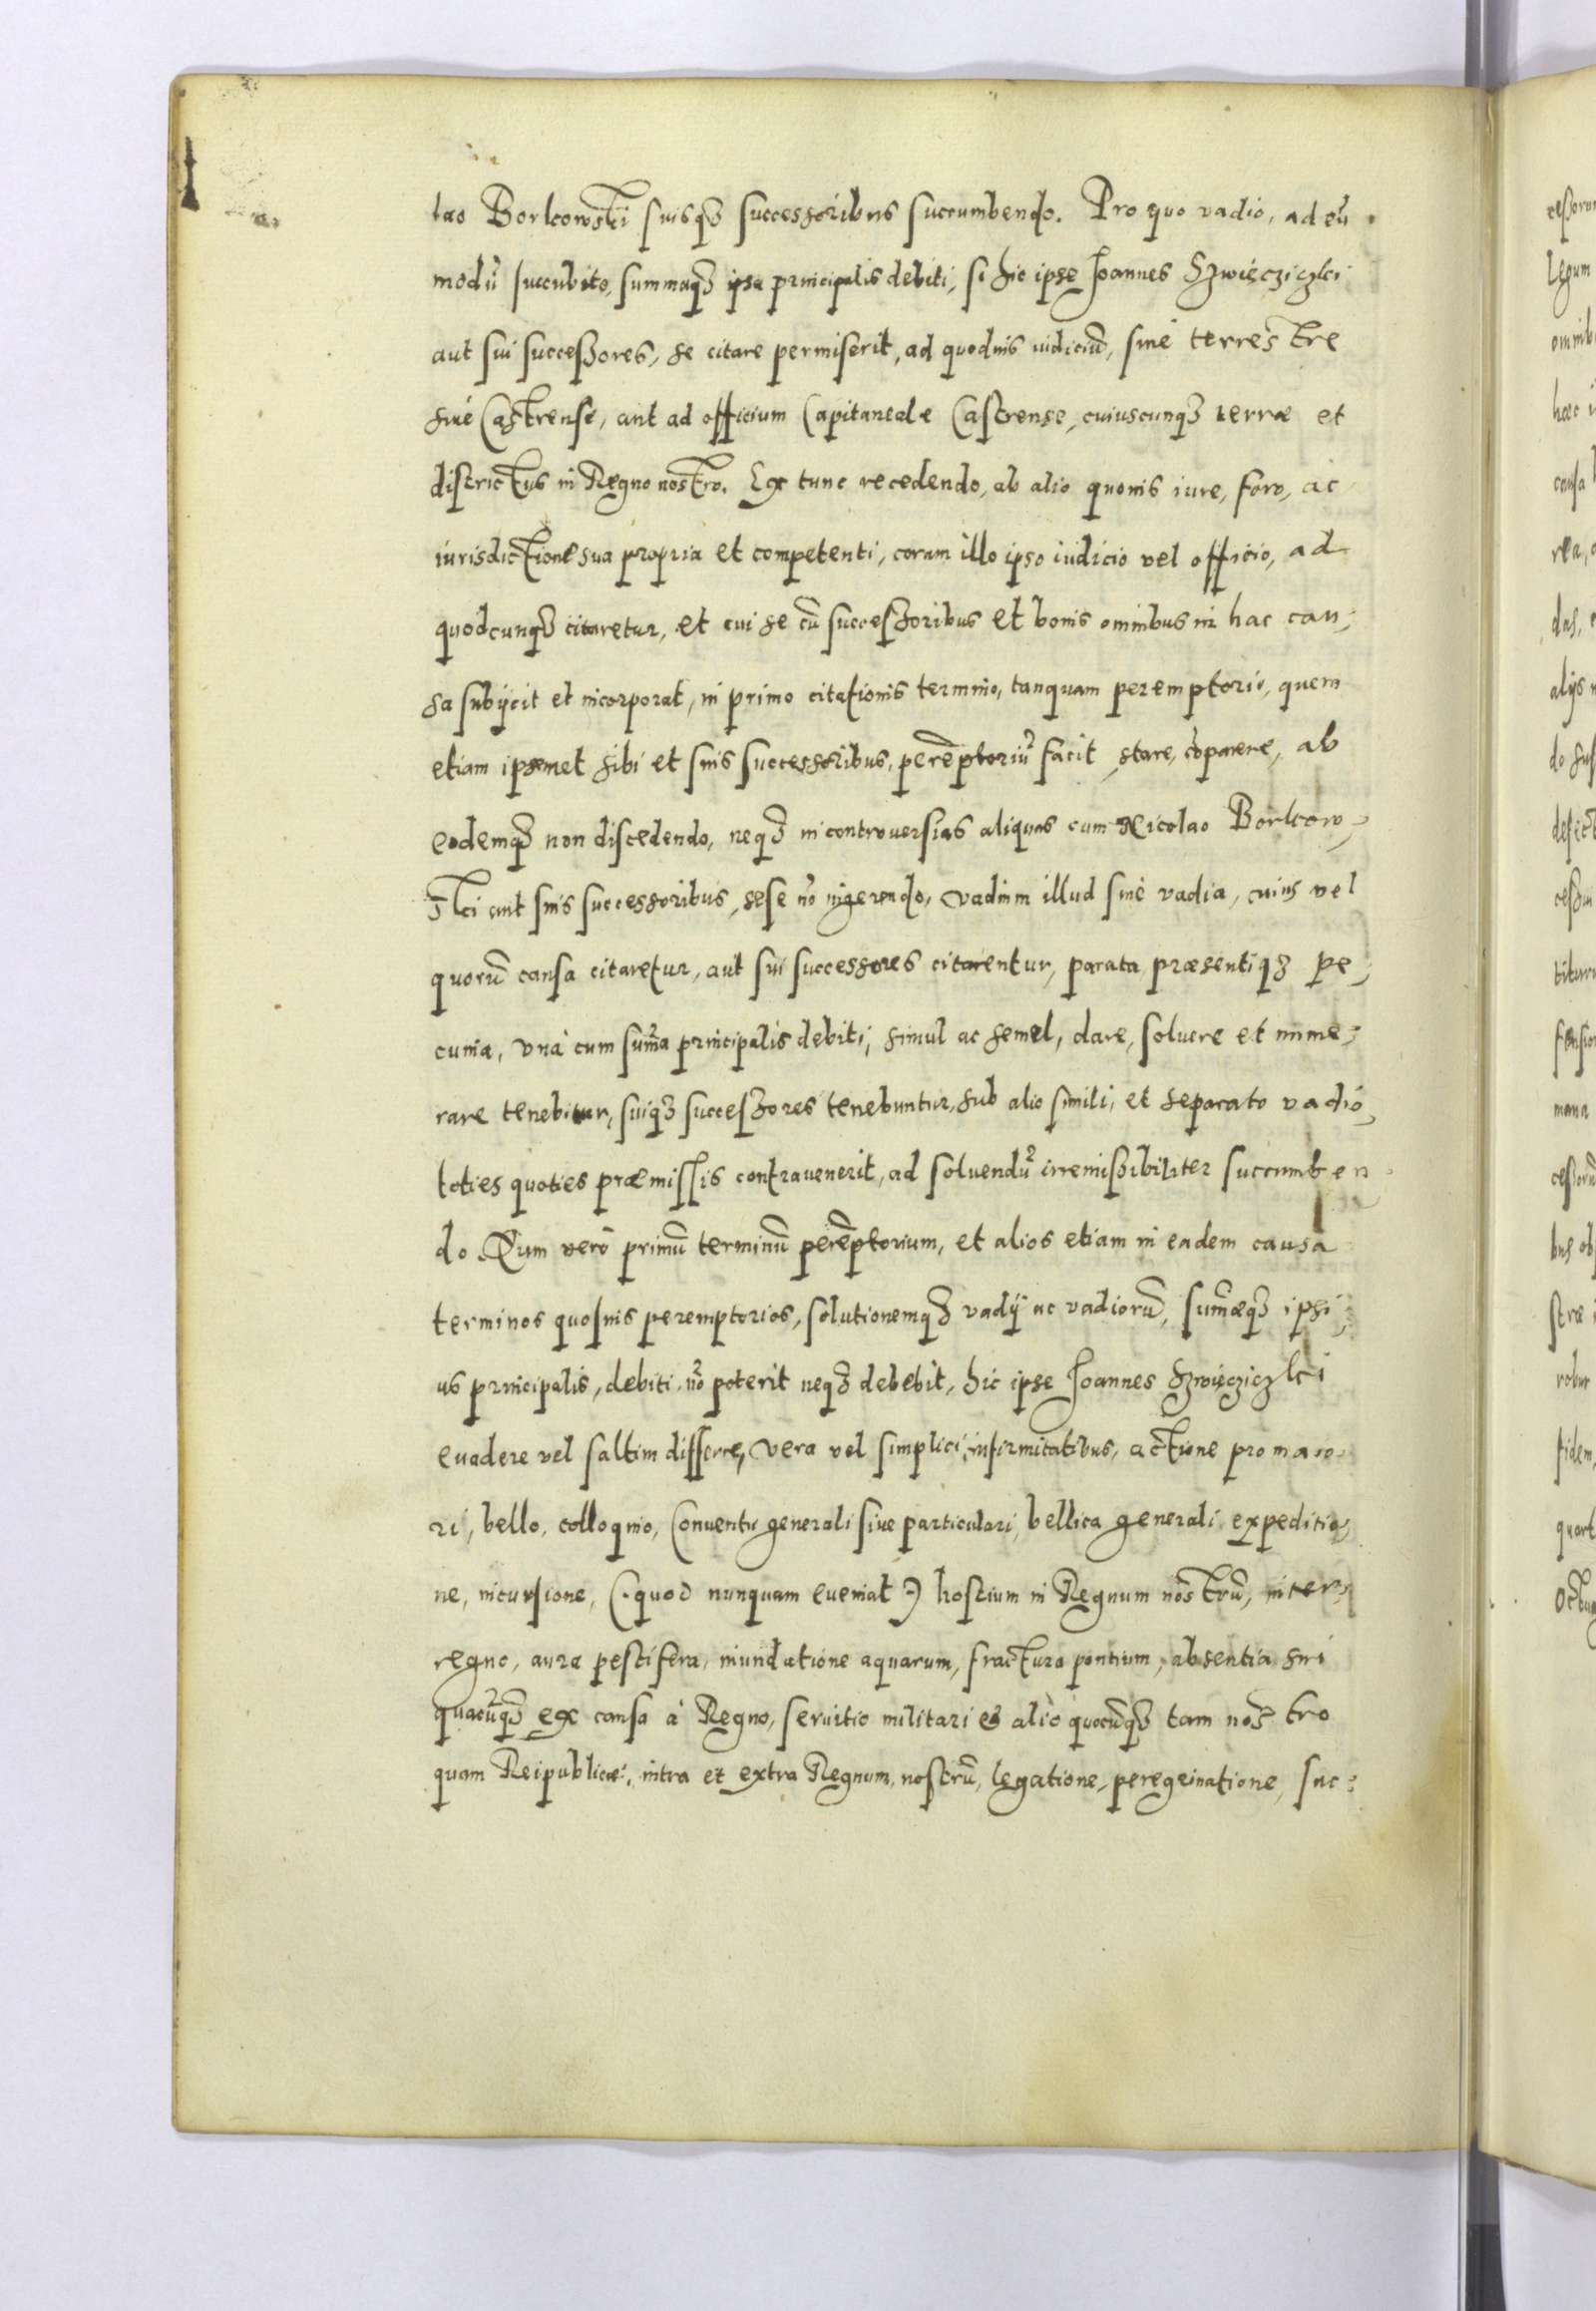 lao Borkowski suisq3 successoribus succumbendo. Pro quo vadio, ad eū
modū succubito, summaq3 ipsa principalis debiti, si hic ipse Joannes Szwięcziczki
aut sui successores, se citare permiserit, ad quoduis iudiciū, siue terrestre
siue Castrense, aut ad officium Capitaneale Castrense, cuiuscunq3 terræ et
districtus in Regno nostro. Ex tunc recedendo, ab alio quouis iure, foro, ac
iurisdictione sua propria et competenti, coram illo ipso iudicio vel officio, ad
quodcunq3 citaretur, et cui se cū successoribus et bonis omnibus in hac cau,
sa subÿcit et incorporat, in primo citationis termino, tanquam peremptorio, quem
etiam ipsemet sibi et suis successoribus, perēptoriū facit, stare, cōparere, ab
eodemq3 non discedendo, neq3 in controuersias aliquas cum Nicolao Borkow,
ski aut suis successoribus, sese nō ingerendo, vadium illud siuè vadia, cuius vel
quorū causa citaretur, aut sui successores citarentur, parata præsentiq3 pe,
cunia, vnà cum sum̄a principalis debiti, simul ac semel, dare, soluere et nume,
rare tenebitur, suiq3 successores tenebuntur, sub alio simili, et separato vadio,
toties quoties præmissis contrauenerit, ad soluendū irremissibiliter succumben
do. Quem verò primū terminū perēptorium, et alios etiam in eadem causa
terminos quosuis peremptorios, solutionemq3 vadÿ ac vadiorū, sum̄æq3 ipsi,
us principalis, debiti, nō poterit neq3 debebit, hic ipse Joannes Szwięcziczki
euadere vel saltim differre, vera vel simplici, infirmitatibus, actione pro maio
ri, bello, colloquio, Conuentu generali siue particulari, bellica generali expeditio,
ne, incursione, (quod nunquam eueniat) hostium in Regnum nostrū, inter,
regno, aura pestifera, inundatione aquarum, fractura pontium, absentia sui
quacūq3 ex causa à Regno, seruitio militari et alio quocūq3 tam nostro
quam Reipublicæ, intra et extra Regnum, nostrū, legatione, peregrinatione, suc,